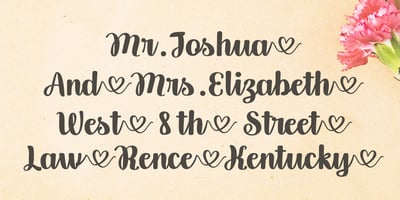 Mr.Joshua♡
And♡Mrs.Elizabeth♡
West♡ 8th♡ Street♡
Law♡Rence♡Kentucky♡